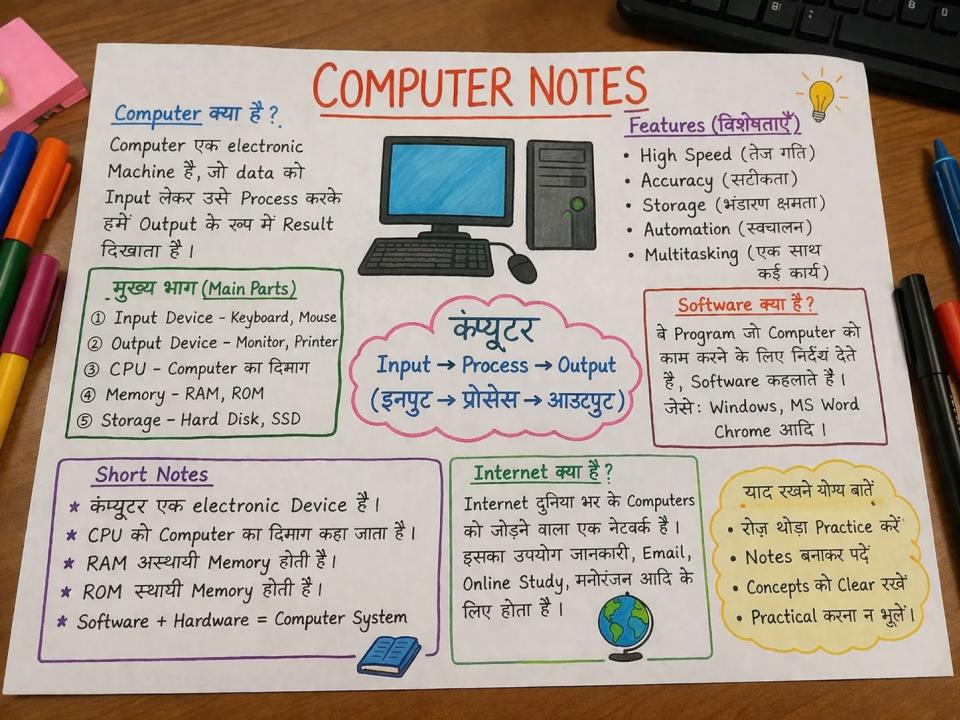 COMPUTER NOTES
Computer क्या है?
Computer एक electronic
Machine है, जो data को
Input लेकर उसे Process करके
हमें Output के रूप में Result
दिखाता है।
Features (विशेषताएँ)
• High Speed (तेज गति)
• Accuracy (सटीकता)
• Storage (भंडारण क्षमता)
• Automation (स्वचालन)
• Multitasking (एक साथ
कई कार्य)
मुख्य भाग (Main Parts)
① Input Device - Keyboard, Mouse
② Output Device - Monitor, Printer
③ CPU - Computer का दिमाग
④ Memory - RAM, ROM
⑤ Storage - Hard Disk, SSD
कंप्यूटर
Input → Process → Output
(इनपुट → प्रोसेस → आउटपुट)
Software क्या है?
वे Program जो Computer को
काम करने के लिए देते
है, Software कहलाते है।
जेसे: Windows, MS Word
Chrome आदि।
Short Notes
★ कंप्यूटर एक electronic Device है।
★ CPU को Computer का दिमाग कहा जाता है।
★ RAM अस्थायी Memory होती है।
★ ROM स्थायी Memory होती है।
★ Software + Hardware = Computer System
Internet क्या है?
Internet दुनिया भर के Computers
को जोड़ने वाला एक नेटवर्क है।
इसका उपयोग जानकारी, Email,
Online Study, मनोरंजन आदि के
लिए होता है।
याद रखने योग्य बातें
• रोज़ थोड़ा Practice करें
• Notes बनाकर पढ़ें
• Concepts को Clear रखें
• Practical करना न भूलें।